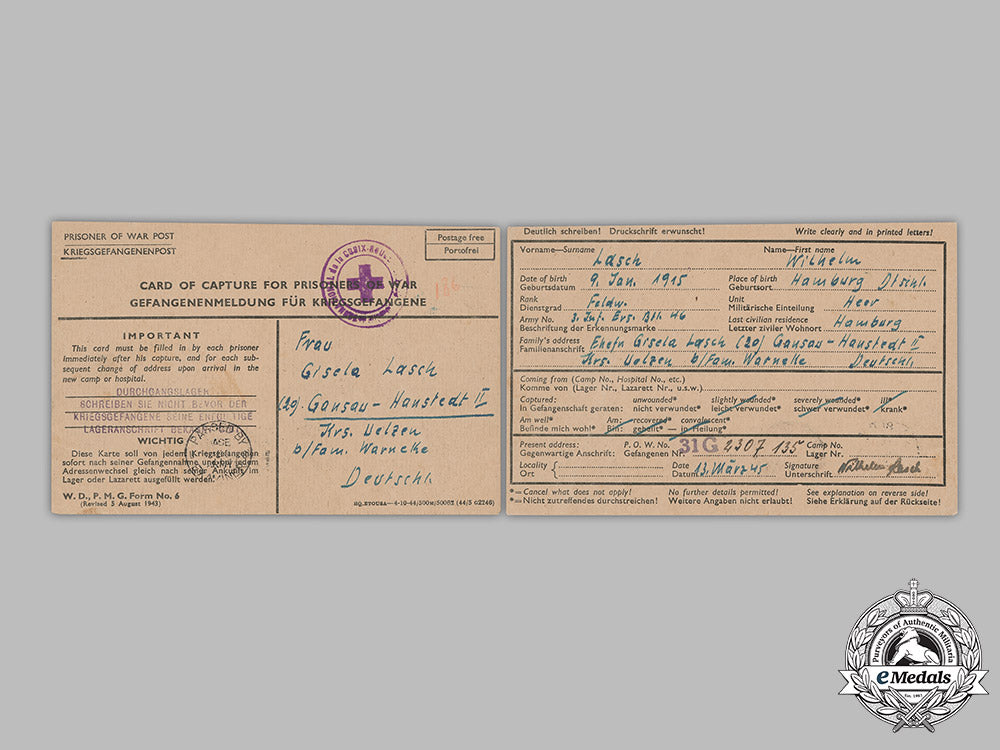 PRISONER OF WAR POST
KRIEGSGEFANGENENPOST
Postage free
Portofrei
CARD OF CAPTURE FOR PRISONERS OF WAR
GEFANGENENMELDUNG FÜR KRIEGSGEFANGENE
186
IMPORTANT
This card must be filled in by each prisoner
immediately after his capture, and for each sub-
sequent change of address upon arrival in the
new camp or hospital.
DURCHGANGSLAGER
SCHREIBEN SIE NICHT BEVOR DER
KRIEGSGEFANGENE SEINE ENDGÜLTIGE
LAGERANSCHRIFT
WICHTIG
PASSED BY
Diese Karte soll von jedem Kriegsgefangenen
sofort nach seiner Gefangennahme und bei jedem
Adressenwechsel gleich nach seiner Ankunft im
Lager oder Lazarett ausgefüllt werden!
W. D., P. M. G. Form No. 6
(Revised 5 August 1943)
Frau
Gisela Lasch
(20) Gansau-Hanstedt II
Krs. Uelzen
b/Fam. Warneke
Deutschl.
HQ.ETOUSA—4-10-44/500M/50082 (44/5 G2246)
Deutlich schreiben! Druckschrift erwunscht!
Write clearly and in printed letters!
Vorname—Surname Lasch
Name—First name Wilhelm
Date of birth
Geburtsdatum 9. Jan. 1915
Place of birth
Geburtsort. Hamburg Dtschl.
Rank
Dienstgrad Feldw.
Unit
Militärische Einteilung Heer
Army No.
Beschriftung der Erkennungsmarke 3. Inf. Ers. Btl. 46
Last civilian residence
Letzter ziviler Wohnort Hamburg
Family's address
Familienanschrift Ehefr. Gisela Lasch (20) Gansau-Hanstedt II
Krs. Uelzen b/Fam. Warneke Deutschl.
Coming from (Camp No., Hospital No., etc.)
Komme von (Lager Nr., Lazarett Nr., u.s.w.)
Captured: unwounded* slightly wounded* severely wounded* ill*
In Gefangenschaft geraten: nicht verwundet* leicht verwundet* schwer verwundet* krank*
Am well* Am: recovered* convalescent*
Befinde mich wohl* Bin: geheilt* — in Heilung*
Present address: P. O. W. No. 31G 2307 135 Camp No.
Gegenwärtige Anschrift: Gefangenen Nr. Lager Nr.
Locality
Ort
Date
Datum 13. März 45
Signature
Unterschrift Wilhelm Lasch
*=Cancel what does not apply! No further details permitted! See explanation on reverse side!
*=Nicht zutreffendes durchstreichen! Weitere Angaben nicht erlaubt! Siehe Erklärung auf der Rückseite!
Purveyors of Authentic Militaria
eMedals